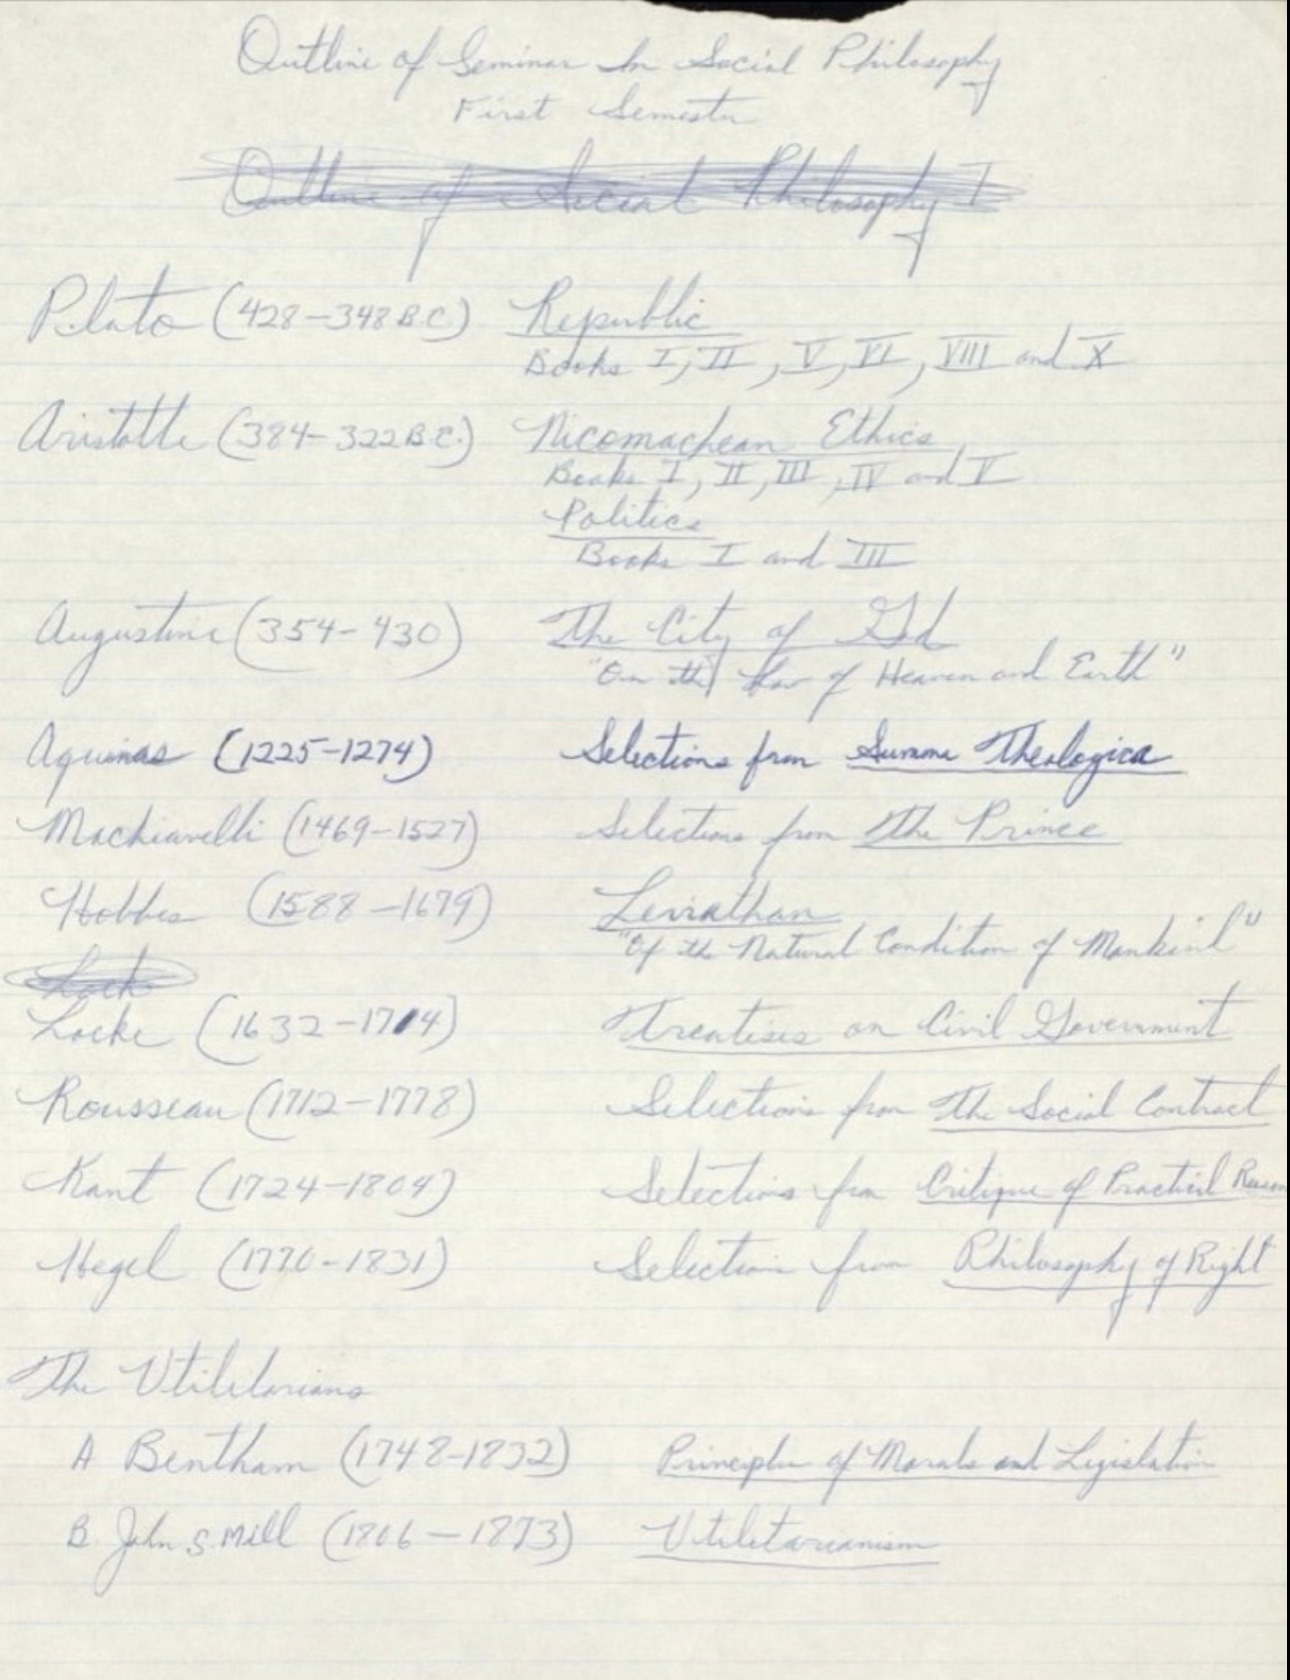 Outline of Seminar In Social Philosophy
First Semester
Outline of Social Philosophy I
Plato (428-348 B.C.) Republic
Books I, II, V, VI, VIII and X
Aristotle (384-322 B.C.) Nicomachean Ethics
Books I, II, III, IV and V
Politics
Books I and III
Augustine (354-430) The City of God
"On the Law of Heaven and Earth"
Aquinas (1225-1274) Selections from Summa Theologica
Machiavelli (1469-1527) Selections from The Prince
Hobbes (1588-1679) Leviathan
"Of the Natural Condition of Mankind"
Lock
Locke (1632-1704) Treatises on Civil Government
Rousseau (1712-1778) Selections from The Social Contract
Kant (1724-1804) Selections from Critique of Practical Reason
Hegel (1770-1831) Selections from Philosophy of Right
The Utilitarians
A Bentham (1748-1832) Principles of Morals and Legislation
B. John S. Mill (1806-1873) Utilitarianism